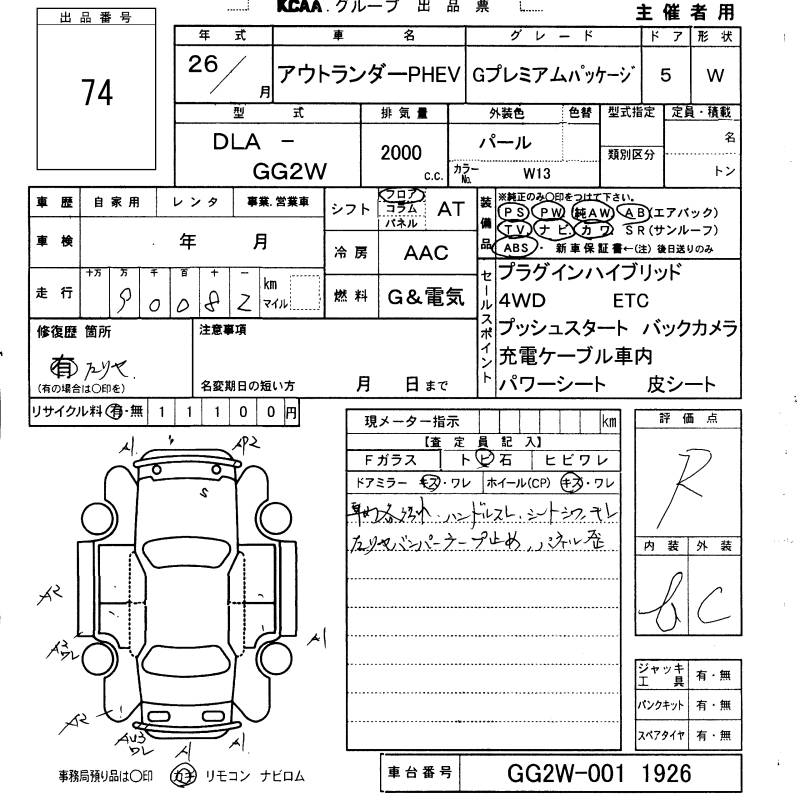 KCAA.グループ 出品票
主催者用
出品番号
74
年式 車名 グレード ドア 形状
26/月 アウトランダーPHEV Gプレミアムパッケージ 5 W
型式 排気量 外装色 色替 型式指定 定員・積載
DLA - GG2W 2000 c.c. パール 類別区分 名
カラーNo. W13 トン
車歴 自家用 レンタ 事業.営業車
シフト フロア コラム パネル AT
装備品 ※純正のみ○印をつけて下さい。
PS PW 純AW AB(エアバック)
TV ナビ カワ SR(サンルーフ)
ABS・ 新車保証書←(注)後日送りのみ
車検 年 月
冷房 AAC
走行 十万 万 千 百 十 一
90082 km マイル
燃料 G&電気
セールスポイント
プラグインハイブリッド
4WD ETC
プッシュスタート バックカメラ
充電ケーブル車内
パワーシート 皮シート
修復歴 箇所
有 左リヤ
(有の場合は○印を)
注意事項
名変期日の短い方 月 日まで
リサイクル料 有・無 11100円
現メーター指示 km
【査定員記入】
Fガラス トビ石 ヒビワレ
ドアミラー キズ・ワレ ホイール(CP) キズ・ワレ
ハンドルスレ、シートシワ、キレ
左リヤバンパーテープ止め、パネル歪
評価点
R
内装 外装
C
ジャッキ工具 有・無
パンクキット 有・無
スペアタイヤ 有・無
A1 AP2
S
A2
A2 ワレ
A1
A2
AU3 ワレ
A1 A1
事務局預り品は○印 カギ リモコン ナビロム
車台番号 GG2W-001 1926